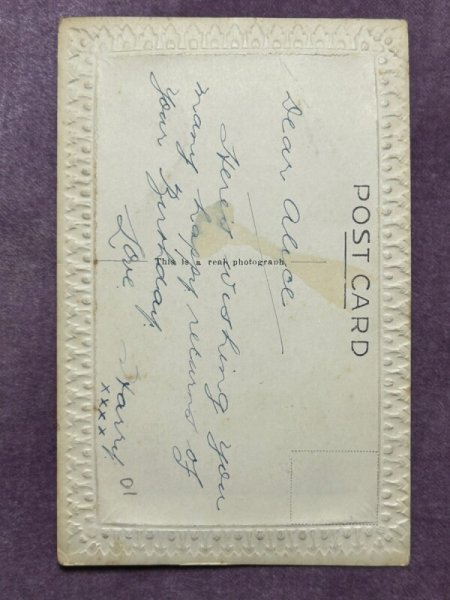 POST CARD
Dear Alice
Here's wishing you
many happy returns of
your Birthday.
Love
Harry.
xxxx
This is a real photograph.